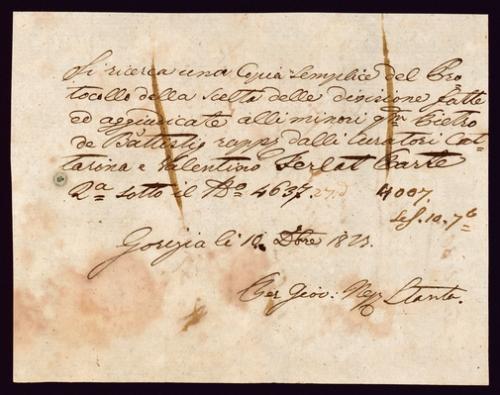 Si ricerca una Copia semplice del Pro
tocollo della scelta delle divisione fatte
ed aggiudicate alli minori qm Pietro
de Battisti rapp: dalli Curatori Cat=
tarina e Valentino Ferlat Carte
2a sotto il No 4637. 4007.
10. 7b
Gorizia li 10 Xbre 1823.
Per Giov: